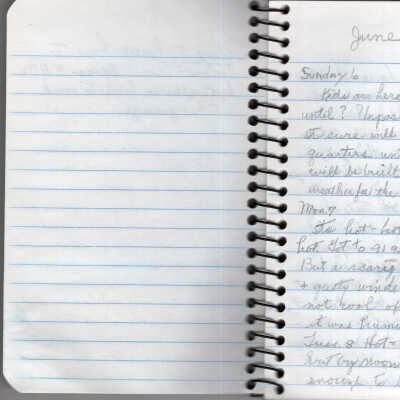 June
Sunday 6
Kids are here
until?
it sure will
quarters unt
will be built
weather for the
Mon 7
Its hot - hot
hot. Got to 91 9
But a scary
+ gusty winds
not cool of
it was
Tues. 8 Hot -
but by noon
enough to